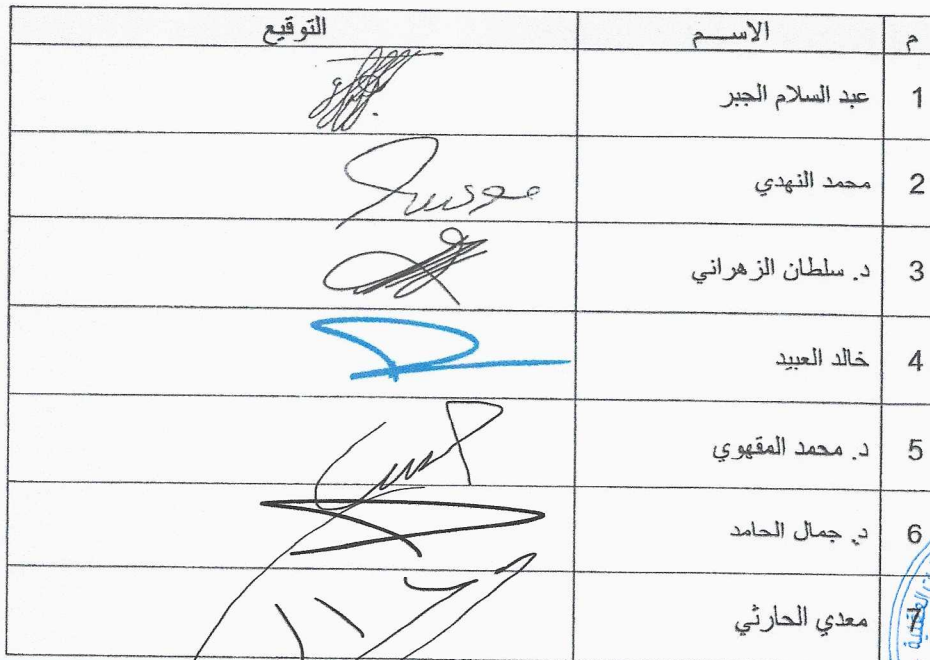 م الاســـم التوقيع
1 عبد السلام الجبر
2 محمد النهدي
3 د. سلطان الزهراني
4 خالد العبيد
5 د. محمد المقهوي
6 د. جمال الحامد
7 معدي الحارثي